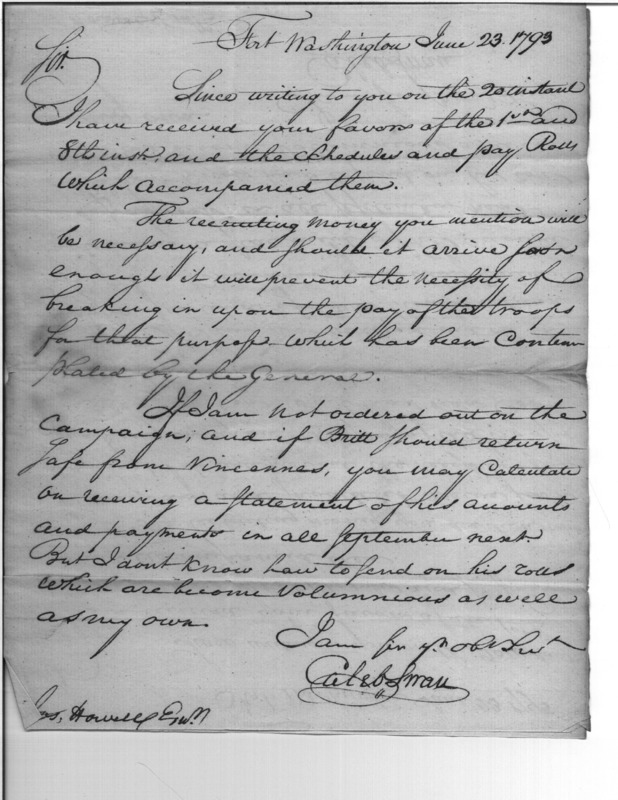 Fort Washington June 23. 1793
Sir.
Since writing to you on the 20 instant
I have received your favors of the 1st and
8th inst. and the schedules and pay Rolls
which accompanied them.
The recruiting money you mention will
be necessary, and should it arrive soon
enough it will prevent the necessity of
breaking in upon the pay of the troops
for that purpose which has been contem
plated by the General.
If I am not ordered out on the
Campaign, and if Britt should return
safe from Vincennes, you may Calculate
on receiving a statement of his accounts
and payments in all September next.
But I dont know how to send on his rolls
which are become Volumnious as well
as my own.
I am sir yr. obt Servt
Caleb Swan
Jos. Howell Esqr.